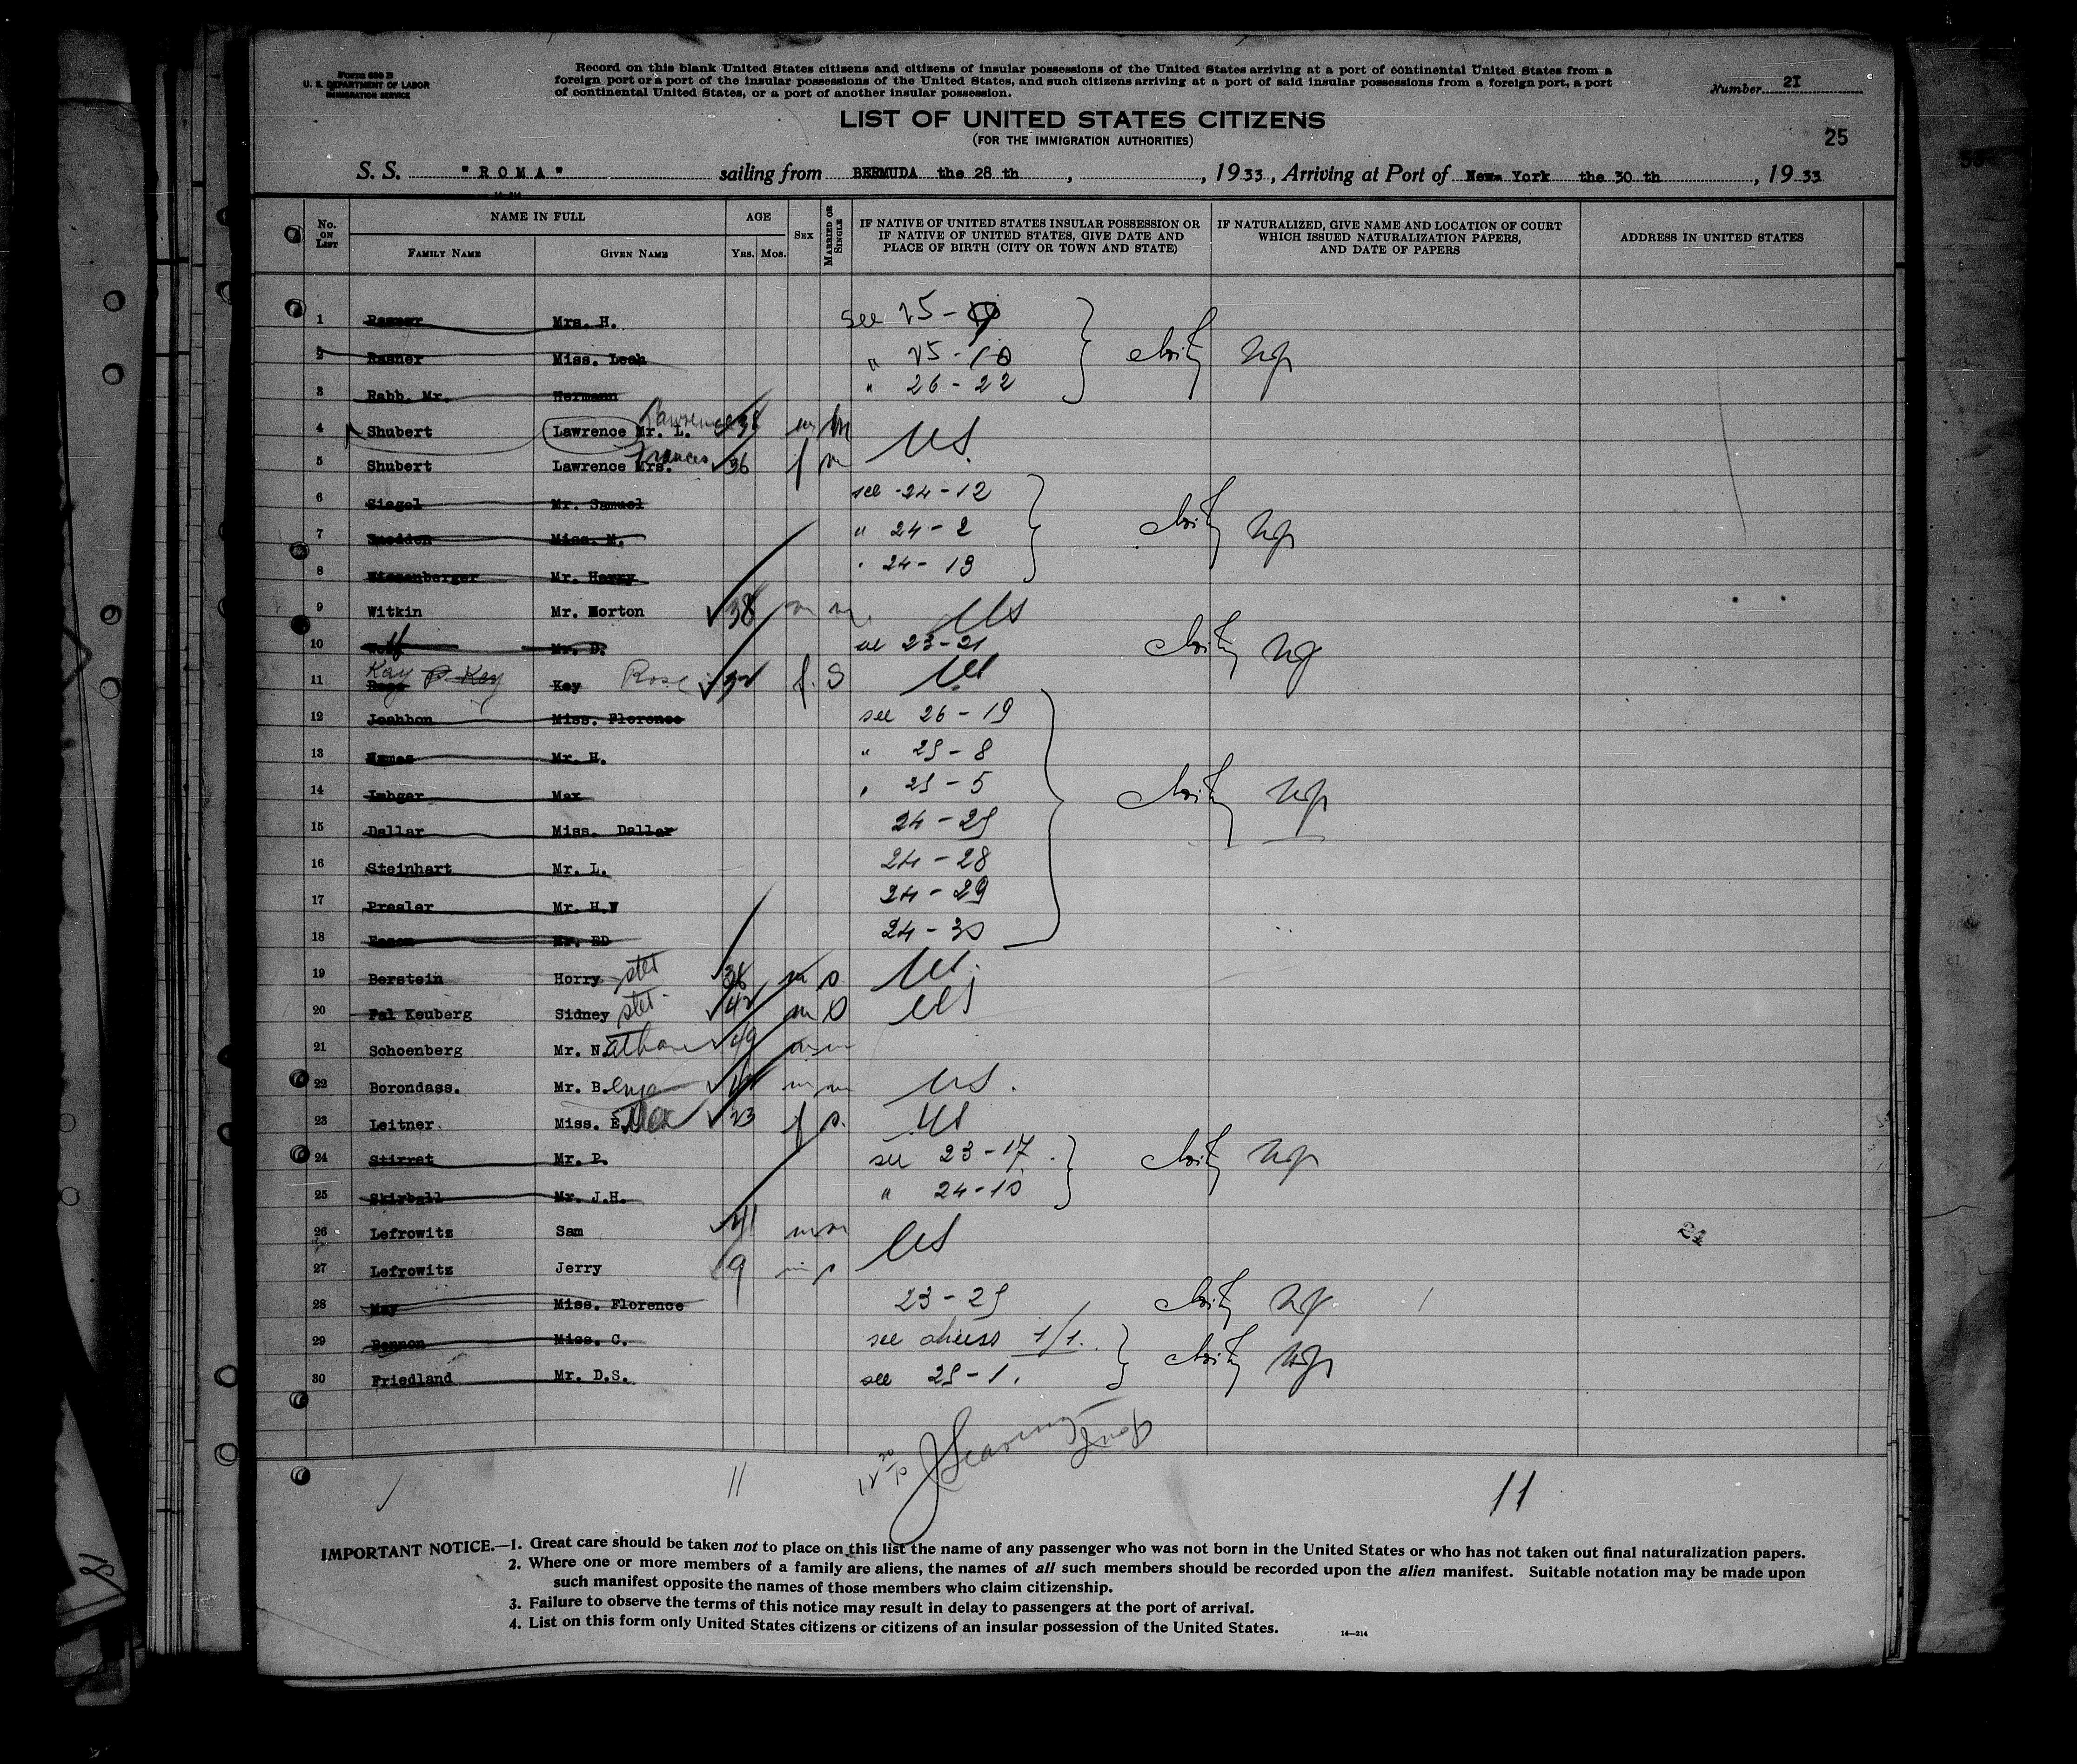 Form 630 B
U. S. DEPARTMENT OF LABOR
IMMIGRATION SERVICE
Record on this blank United States citizens and citizens of insular possessions of the United States arriving at a port of continental United States from a
foreign port or a port of the insular possessions of the United States, and such citizens arriving at a port of said insular possessions from a foreign port, a port
of continental United States, or a port of another insular possession.
Number 2I
LIST OF UNITED STATES CITIZENS
(FOR THE IMMIGRATION AUTHORITIES)
25
S. S. "ROMA" sailing from BERMUDA the 28 th , , 1933, Arriving at Port of New York the 30 th , 1933
No. ON LIST NAME IN FULL AGE SEX MARRIED OR SINGLE IF NATIVE OF UNITED STATES INSULAR POSSESSION OR IF NATIVE OF UNITED STATES, GIVE DATE AND PLACE OF BIRTH (CITY OR TOWN AND STATE) IF NATURALIZED, GIVE NAME AND LOCATION OF COURT WHICH ISSUED NATURALIZATION PAPERS, AND DATE OF PAPERS ADDRESS IN UNITED STATES
FAMILY NAME GIVEN NAME YRS. MOS.
1 Mrs. H. see 25-
2 Rasner Miss. Leah " 25-10
3 Rabb, Mr. Hermann " 26-22
4 Shubert Lawrence Mr. L. Lawrence 38 m m US
5 Shubert Lawrence Mrs. Frances 36 f m
6 Siegel Mr. Samuel see 24-12
7 Miss. M. " 24-2
8 Wissenberger Mr. Harry 24-13
9 Witkin Mr. Morton 38 m m US
10 Wolf Mr. D. see 23-21
11 Kay Key Rose f. S US
12 Joahbon Miss. Florence see 26-19
13 Mr. H. " 25-8
14 Max 25-5
15 Dallar Miss. Dallar 24-25
16 Steinhart Mr. L. 24-28
17 Presler Mr. H.W 24-29
18 Mr. ED 24-30
19 Berstein Horry stet 38 m s US
20 Fal Keuberg Sidney stet 42 m s US
21 Schoenberg Mr. Nathan 49 m m
22 Borondass. Mr. B. m m US.
23 Leitner Miss. E. 23 f s. US
24 Stirret Mr. P. see 23-17
25 Skirball Mr. J.H. " 24-10
26 Lefrowitz Sam 41 m m US
24
27 Lefrowitz Jerry 9 m s
28 May Miss. Florence 23-25
29 Bennon Miss. C. see 1/1.
30 Friedland Mr. D.S. see 25-1.
11
11
IMPORTANT NOTICE.—1. Great care should be taken not to place on this list the name of any passenger who was not born in the United States or who has not taken out final naturalization papers.
2. Where one or more members of a family are aliens, the names of all such members should be recorded upon the alien manifest. Suitable notation may be made upon
such manifest opposite the names of those members who claim citizenship.
3. Failure to observe the terms of this notice may result in delay to passengers at the port of arrival.
4. List on this form only United States citizens or citizens of an insular possession of the United States.
14—214